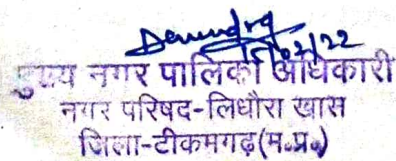 Devendra
मुख्य नगर पालिका अधिकारी
नगर परिषद-लिधौरा खास
जिला-टीकमगढ़(म.प्र.)